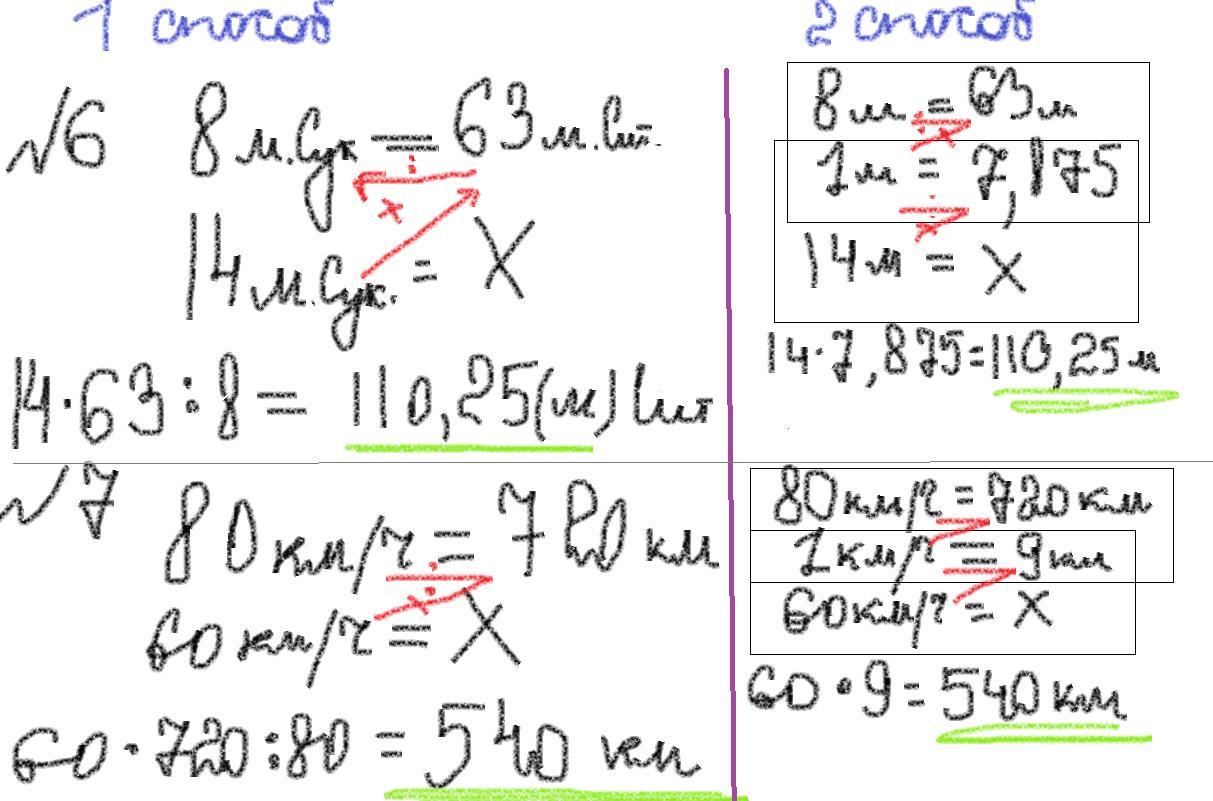 1 способ
№6 8 м.Сук = 63 м.Сит.
: x
14 м.Сук. = X
14·63:8 = 110,25(м) Сит
№7 80 км/ч = 720 км
: x
60 км/ч = X
60·720:80 = 540 км
2 способ
8 м = 63 м
: x
1 м = 7,875
: x
14 м = X
14·7,875=110,25 м
80 км/ч = 720 км
1 км/ч = 9 км
60 км/ч = X
60·9 = 540 км